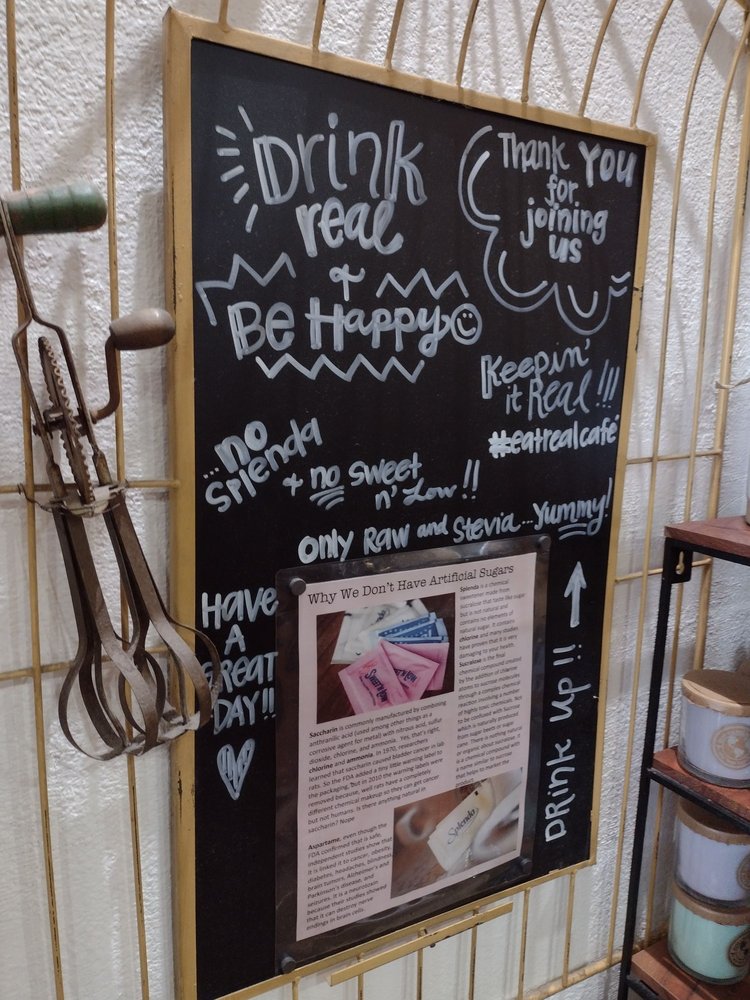 Drink
real
+
Be Happy
Thank You
for
joining
us
Keepin'
it Real!!!
#eatrealcafe
...no
Splenda
+ no sweet
n' Low!!
Only Raw and Stevia...yummy!
Have
A
Great
Day!!
Drink Up!!
Why We Don't Have Artificial Sugars
Saccharin is commonly manufactured by combining
anthranilic acid (used among other things as a
corrosive agent for metal) with nitrous acid, sulfur
dioxide, chlorine, and ammonia. Yes, that's right,
chlorine and ammonia. In 1970, researchers
learned that saccharin caused bladder cancer in lab
rats. So the FDA added a tiny little warning label to
the packaging. But in 2010 the warning labels were
removed because, well rats have a completely
different chemical makeup so they can get cancer
but not humans. Is there anything natural in
saccharin? Nope
Aspartame, even though the
FDA confirmed that is safe,
independent studies show that
it is linked to cancer, obesity,
diabetes, headaches, blindness,
brain tumors, Alzheimer's and
Parkinson's disease, and
seizures. It is a neurotoxin
because their studies showed
that it can destroy nerve
endings in brain cells.
Splenda is a chemical
sweetener made from
sucralose that tastes like sugar
but is not natural and
contains no elements of
natural sugar. It contains
chlorine and many studies
have proven that it is very
damaging to your health.
Sucralose is the final
chemical compound created
by the addition of chlorine
atoms to sucrose molecules
through a complex chemical
reaction involving a number
of highly toxic chemicals. Not
to be confused with sucrose,
which is naturally produced
from sugar beets or sugar
cane. There is nothing natural
or organic about sucralose. It
is a chemical compound with
a name similar to sucrose
that helps to market the
Sweet'N Low
Splenda